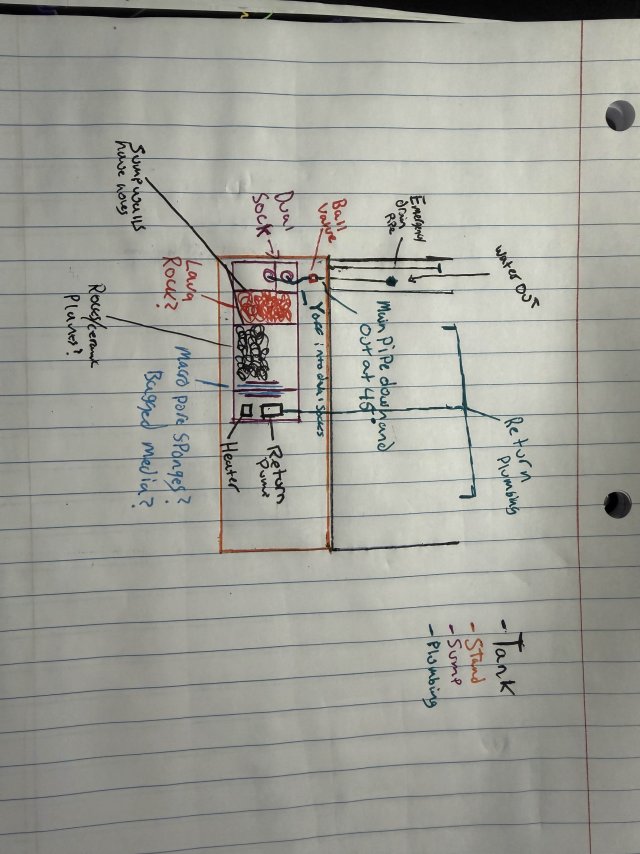 Water out
Emergency
drain
pipe
Ball
valve
Dual
Sock
Sump walls
have holes
Return
Plumbing
Main pipe down and
out at 45°
Lava
Rock?
Rocks/ceramic
Plates?
Macro pore sponges?
Bagged media?
Return
Pump
Heater
- Tank
- Stand
- Sump
- Plumbing